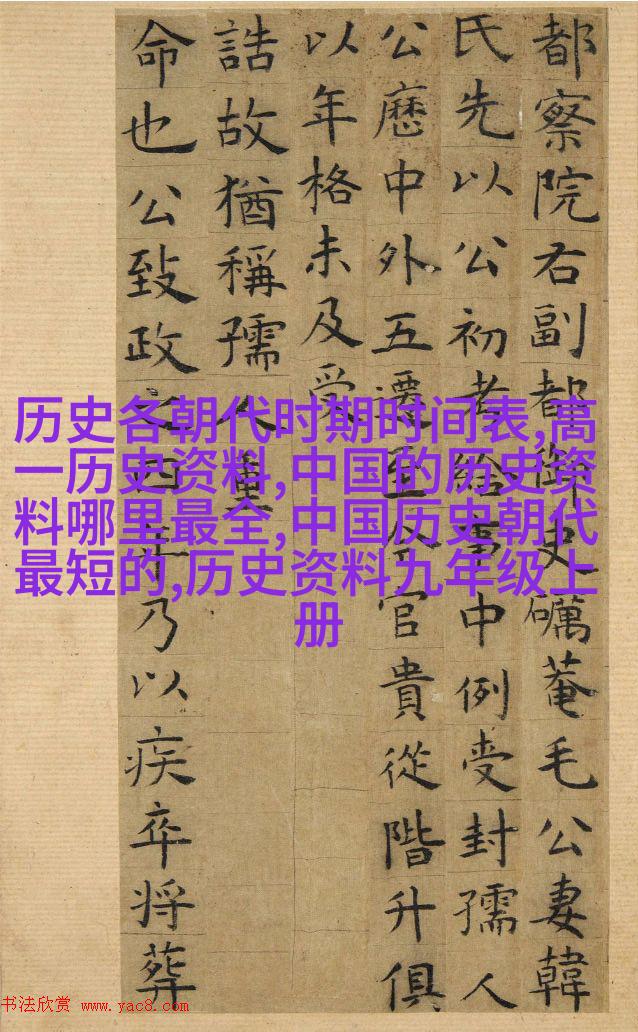 都察院右副都御史礪菴毛公妻韓
氏先以公初考給事中例受封孺人
公歷中外五遷至今官貴從階升俱
以年格未及受
誥故猶稱孺人
命也公致政之四年乃以疾卒将葬
历史各朝代时期时间表,高
一历史资料,中国的历史资
料哪里最全,中国历史朝代
最短的,历史资料九年级上
册
书法欣赏 www.yac8.com